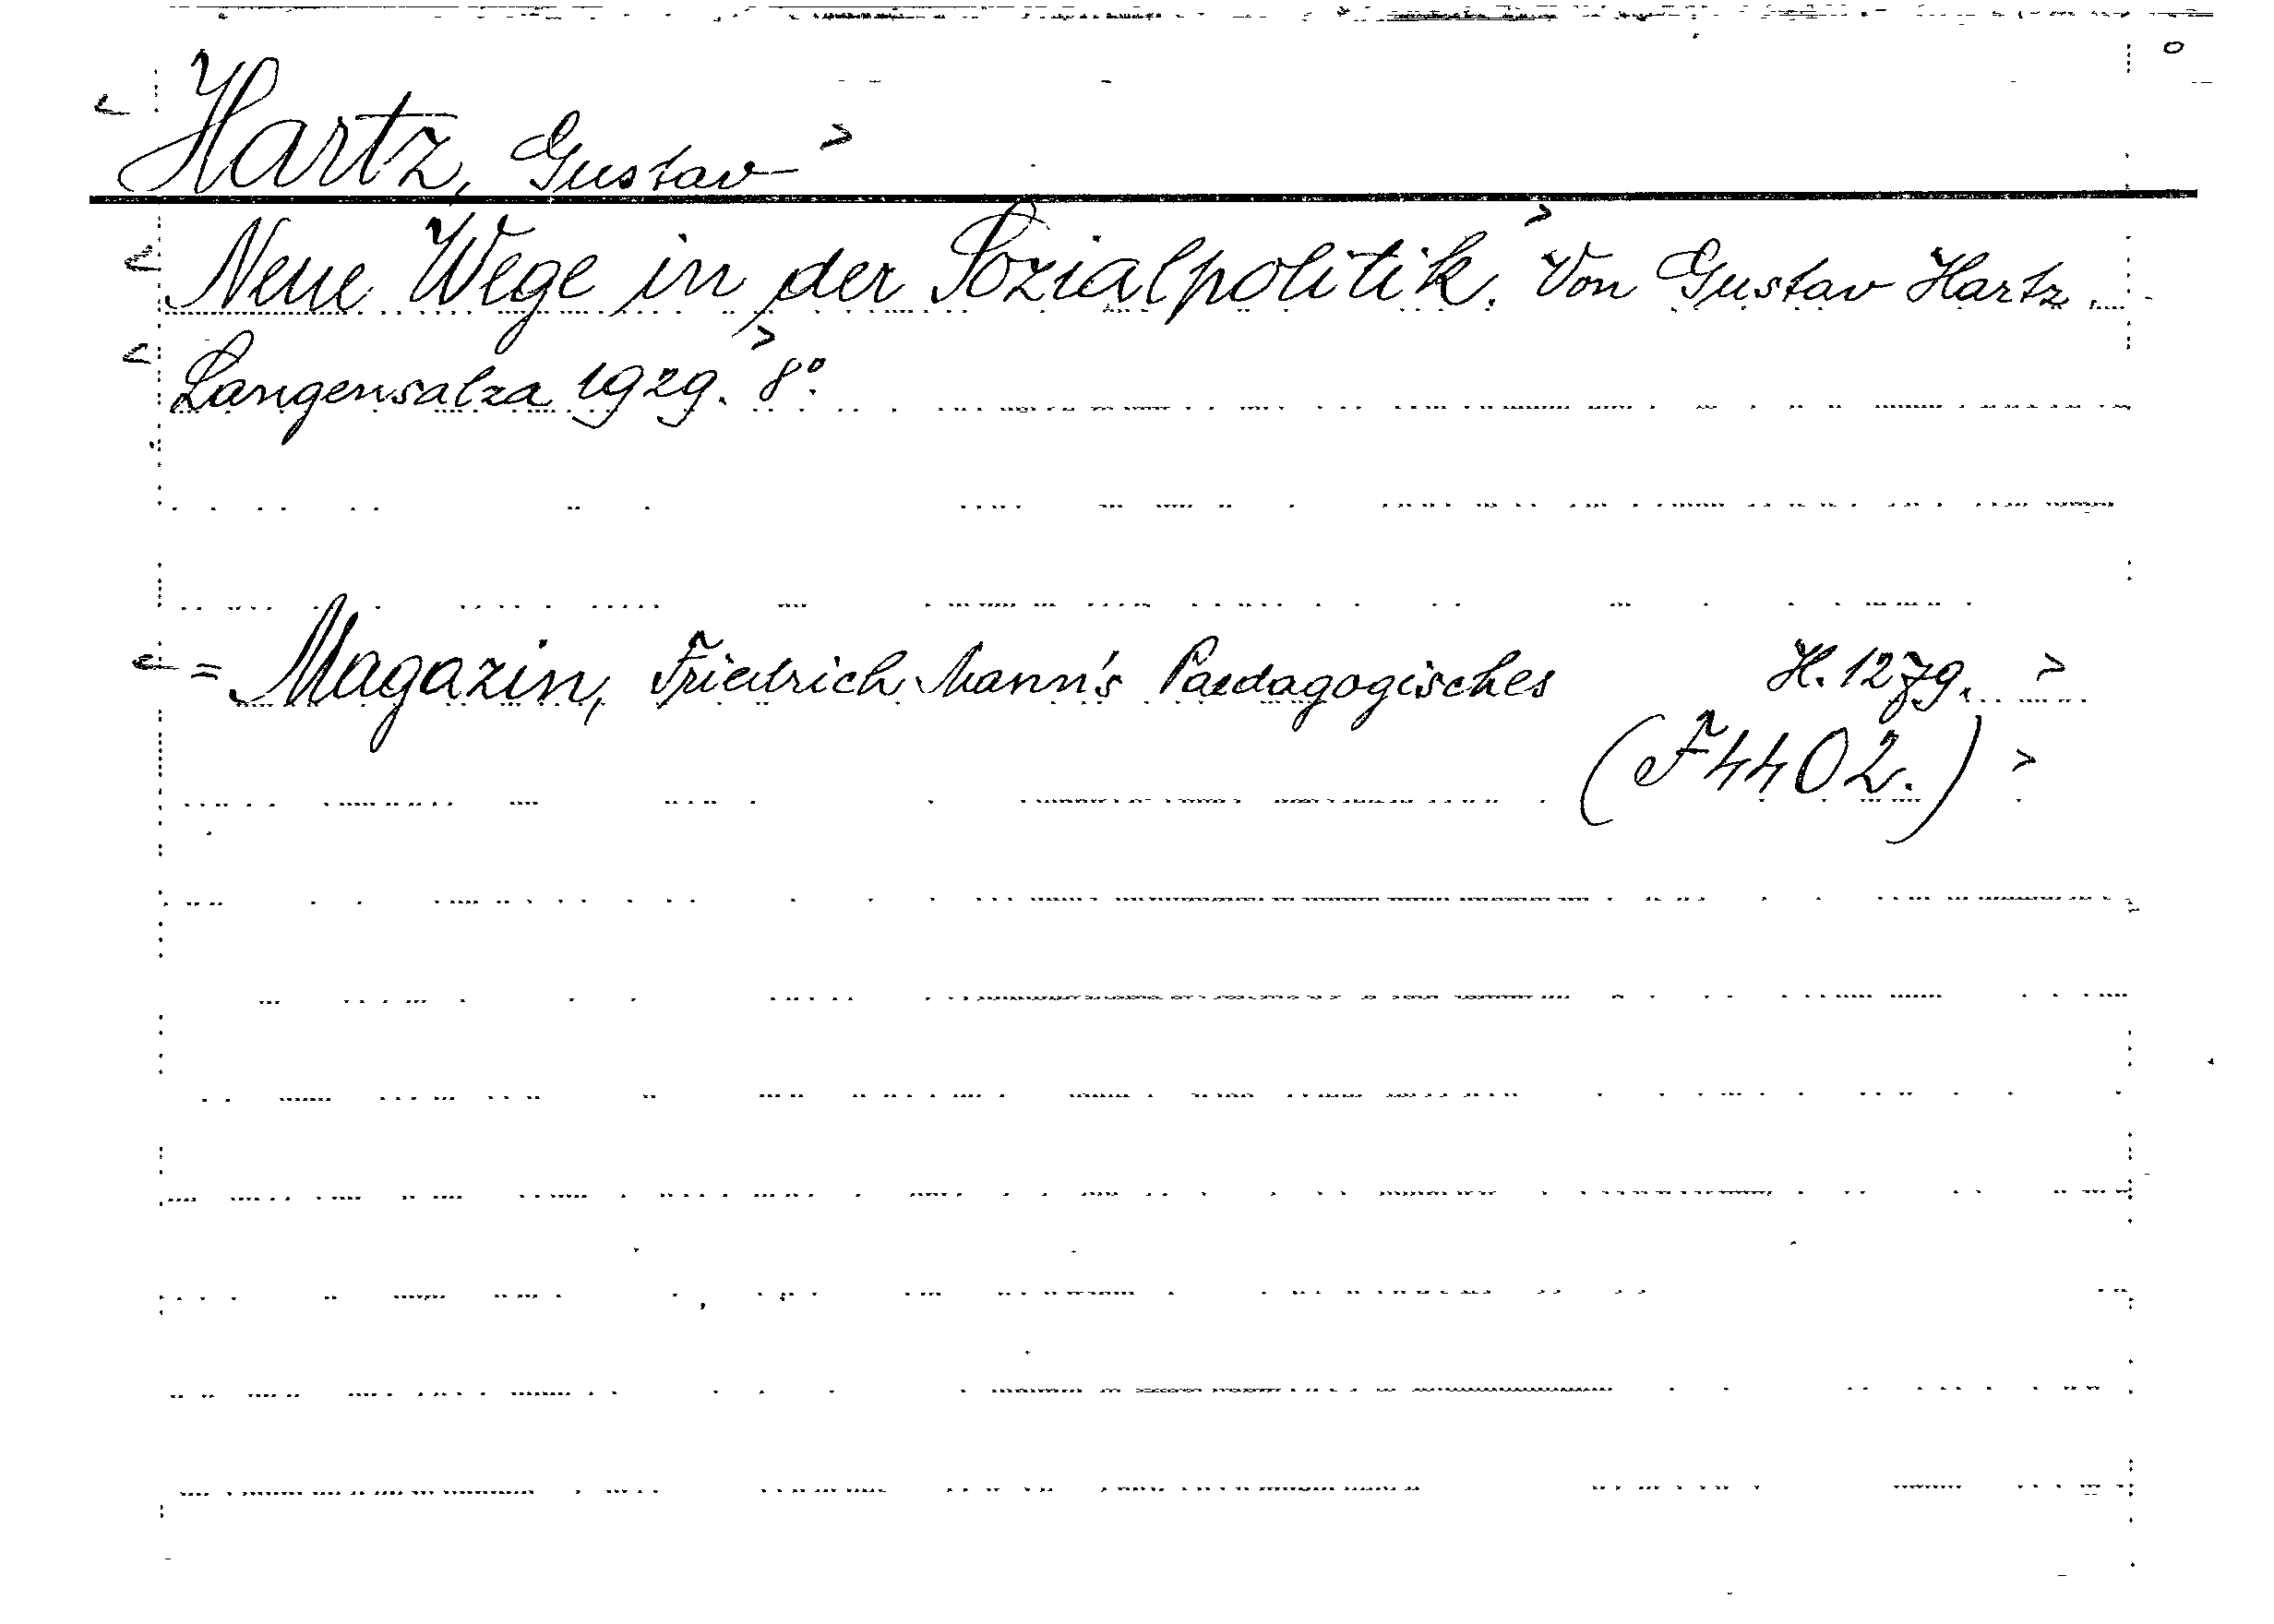 Hartz, Gustav
Neue Wege in der Sozialpolitik. Von Gustav Hartz.
Langensalza 1929. 8°.
= Magazin, Friedrich Mann's Paedagogisches H. 1279.
(F 4402.)